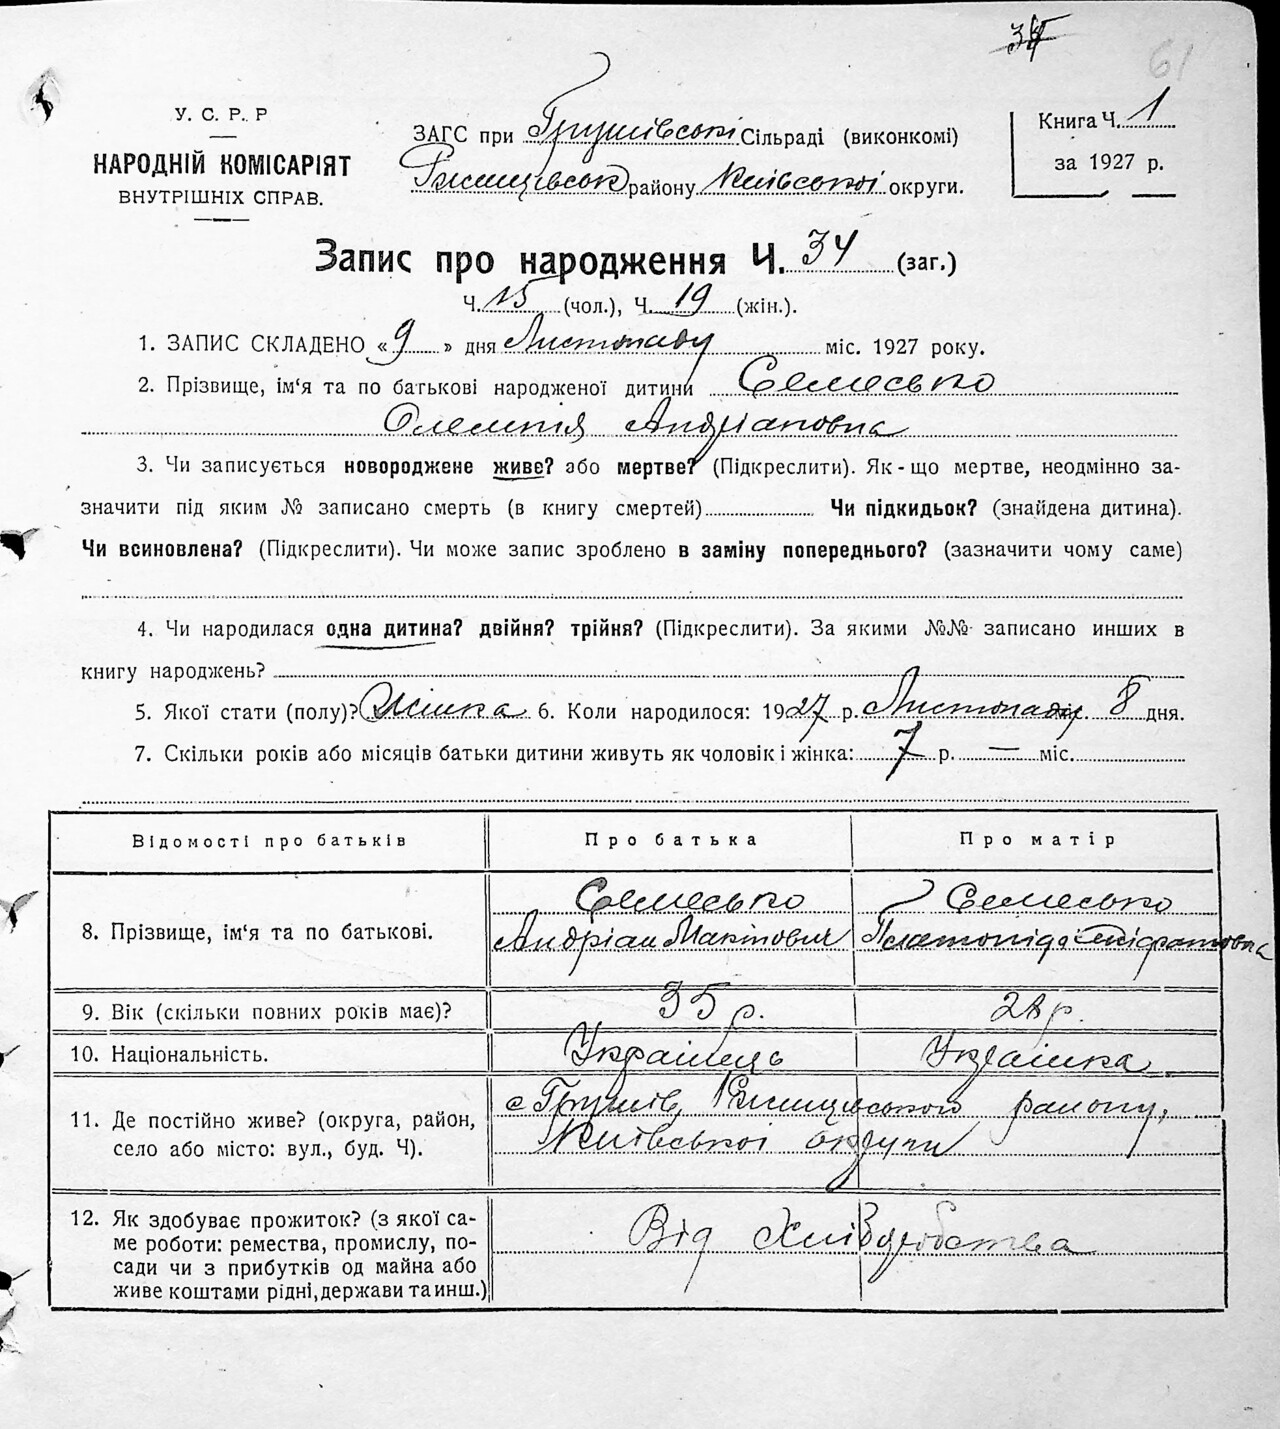 34
61
У. С. Р. Р
НАРОДНІЙ КОМІСАРІЯТ
ВНУТРІШНІХ СПРАВ.
ЗАГС при Грушівські Сільраді (виконкомі)
Ржищівськ району Київської округи.
Книга Ч. 1
за 1927 р.
Запис про народження Ч. 34 (заг.)
Ч. 15 (чол.), Ч. 19 (жін.).
1. ЗАПИС СКЛАДЕНО « 9 » дня Листопаду міс. 1927 року.
2. Прізвище, ім'я та по батькові народженої дитини Семесько
Олемпія Андріановна
3. Чи записується новороджене живе? або мертве? (Підкреслити). Як-що мертве, неодмінно за-
значити під яким № записано смерть (в книгу смертей) Чи підкидьок? (знайдена дитина).
Чи всиновлена? (Підкреслити). Чи може запис зроблено в заміну попереднього? (зазначити чому саме)
4. Чи народилася одна дитина? двійня? трійня? (Підкреслити). За якими №№ записано инших в
книгу народжень?
5. Якої стати (полу)? Жінка 6. Коли народилося: 1927 р. Листопаду 8 дня.
7. Скільки років або місяців батьки дитини живуть як чоловік і жінка: 7 р. — міс.
Відомості про батьків Про батька Про матір
8. Прізвище, ім'я та по батькові.
Семесько Семесько
Андріан Макітович
9. Вік (скільки повних років має)? 35 р. 28 р.
10. Національність. Українець Українка
11. Де постійно живе? (округа, район,
село або місто: вул., буд. Ч).
с Грушів, Ржищівського району,
Київської округи
12. Як здобуває прожиток? (з якої са-
ме роботи: ремества, промислу, по-
сади чи з прибутків од майна або
живе коштами рідні, держави та инш.)
Від Хліборобства